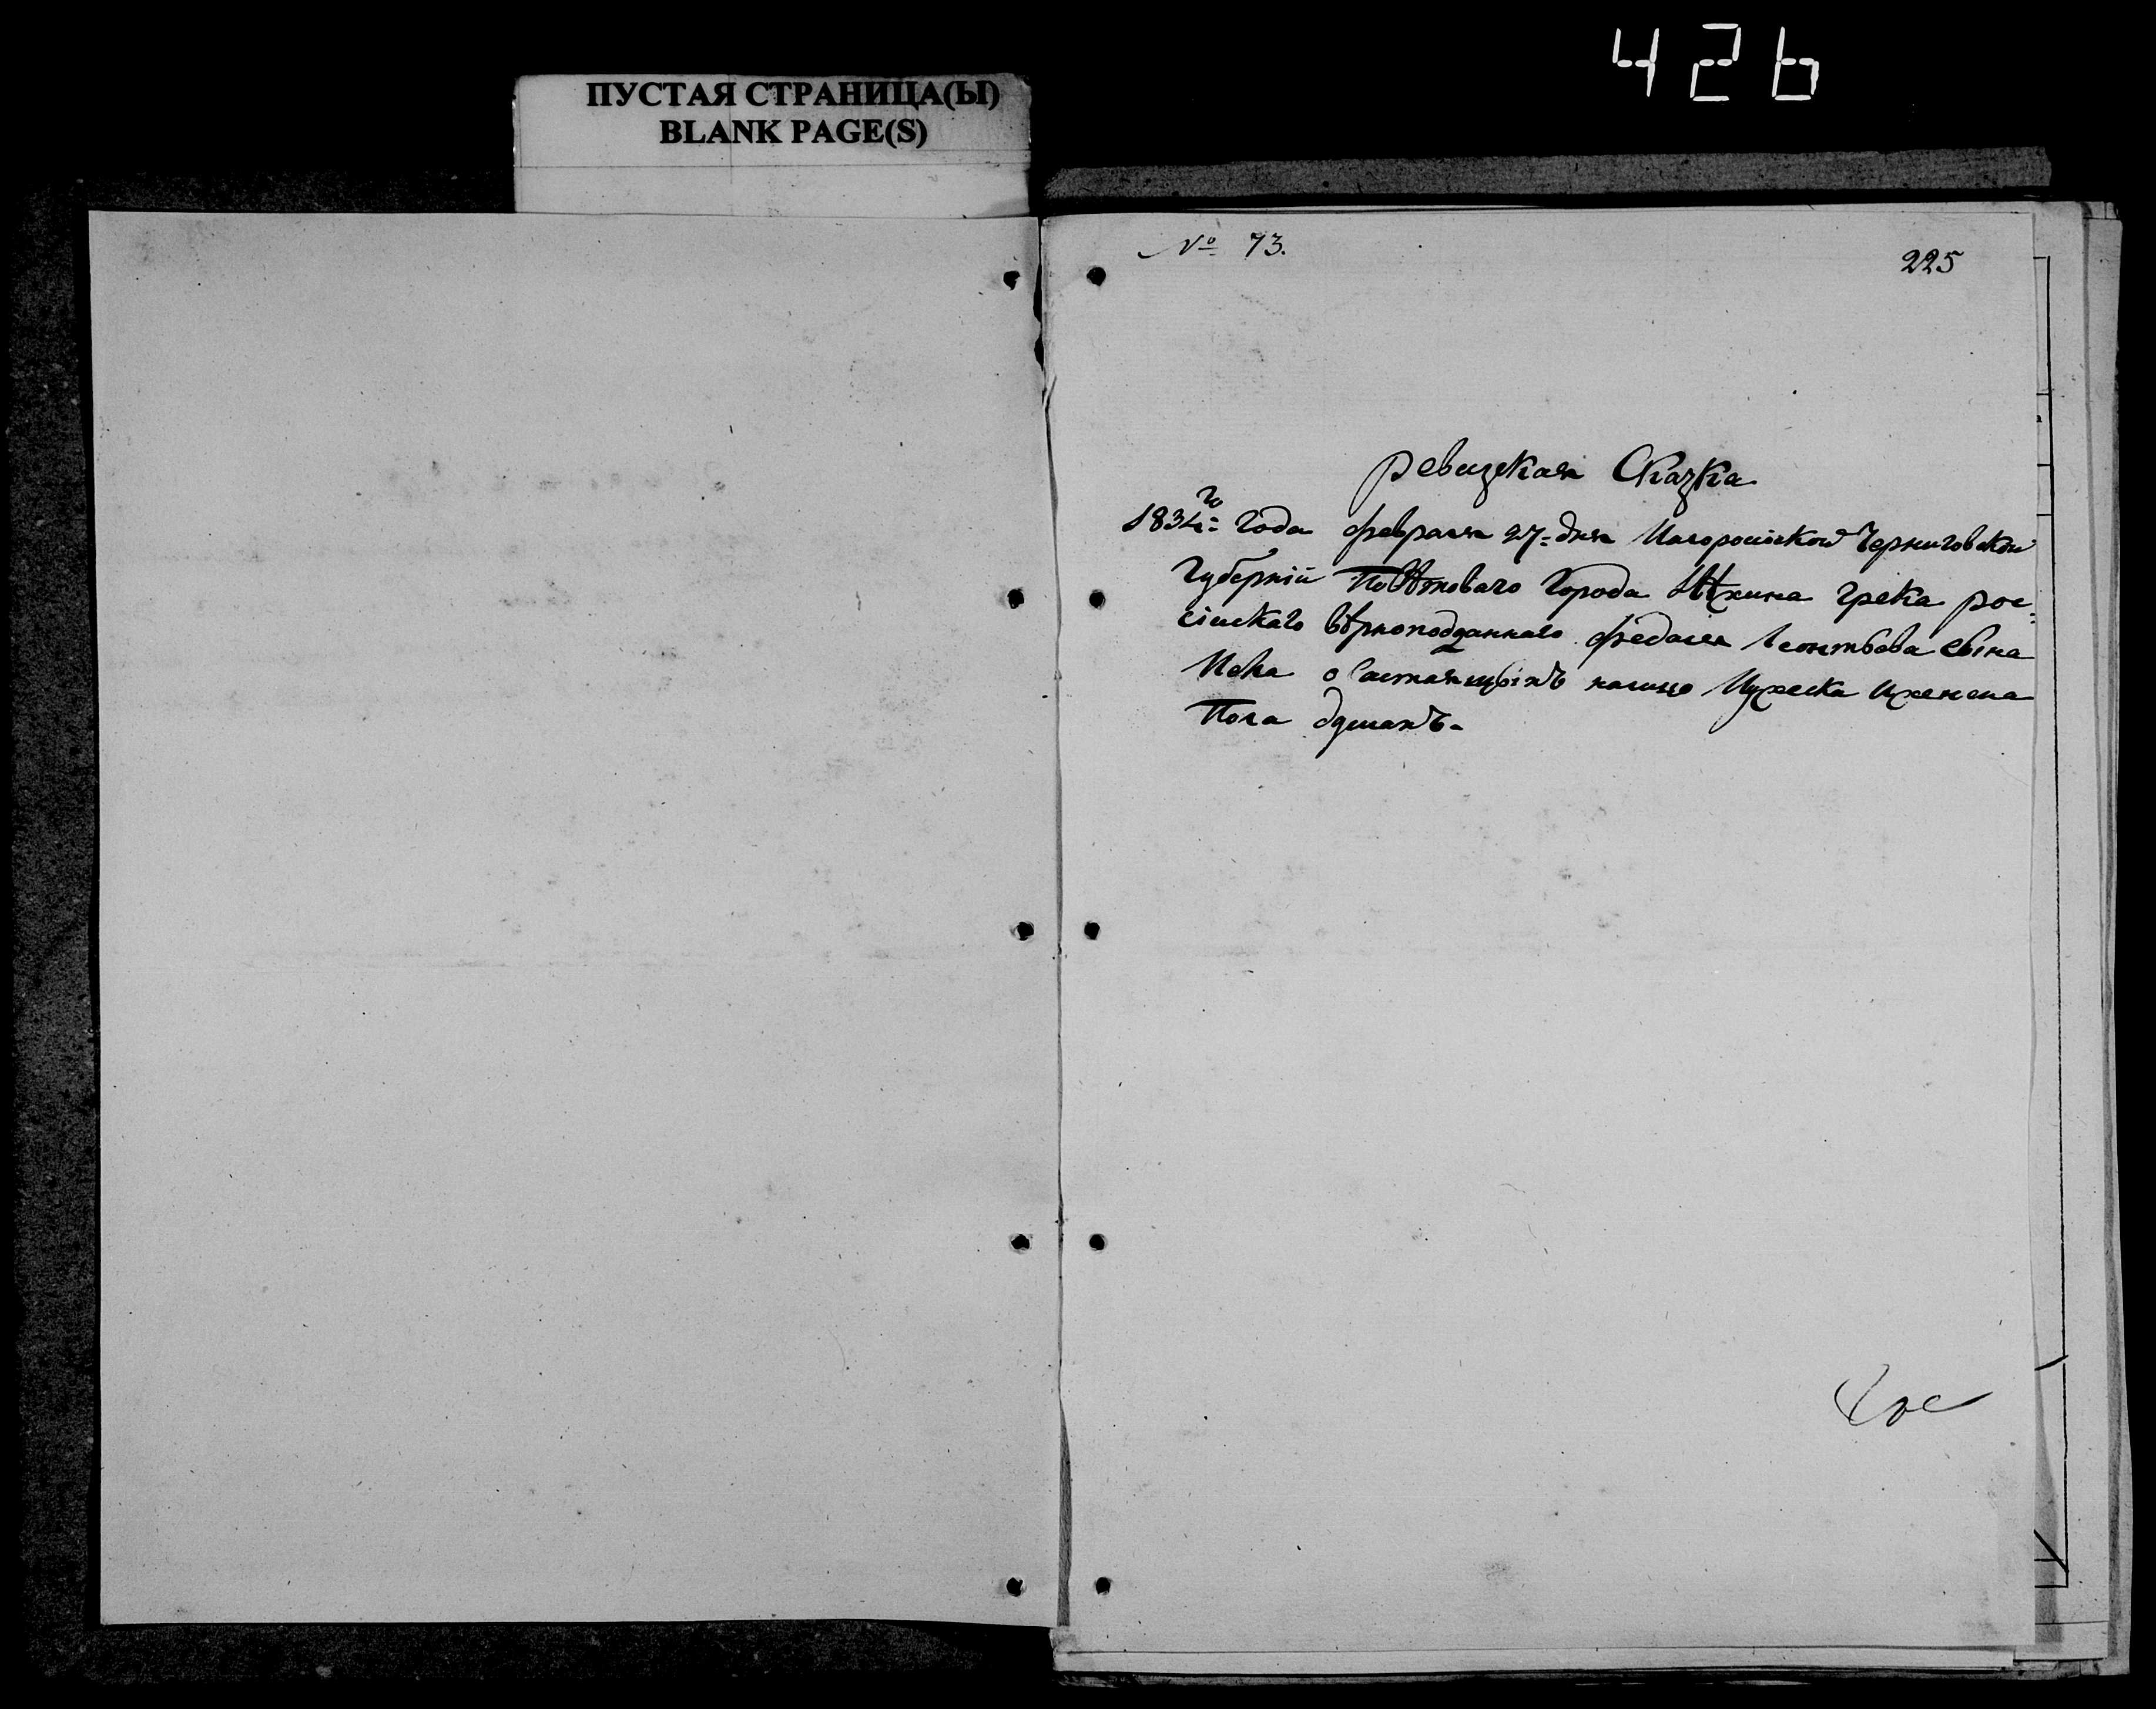 426
ПУСТАЯ СТРАНИЦА(Ы)
BLANK PAGE(S)
№ 73.
225
Ревизская Сказка
1834го года февраля 27 = дня Малоросійской Черниговской
Губерніи Повѣтоваго Города Нѣжина грека рос=
сійскаго вѣрноподданнаго федора Леонтьева
о Састаящыхъ налицо Мужеска и женска
Пола душахъ.